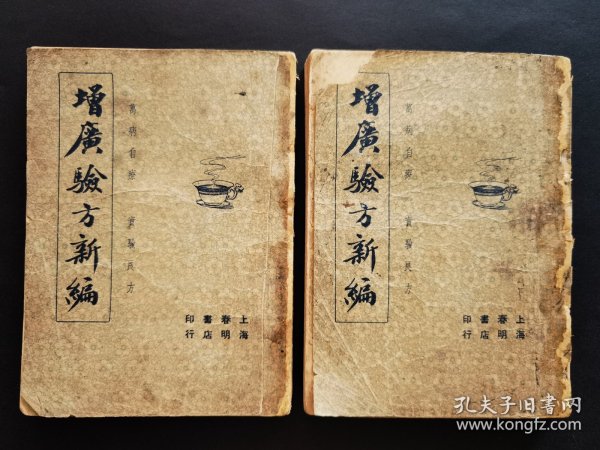 增廣驗方新編
萬病自療 實驗良方
上海
春明
書店
印行
增廣驗方新編
萬病自療 實驗良方
上海
春明
書店
印行
孔夫子旧书网
www.kongfz.com